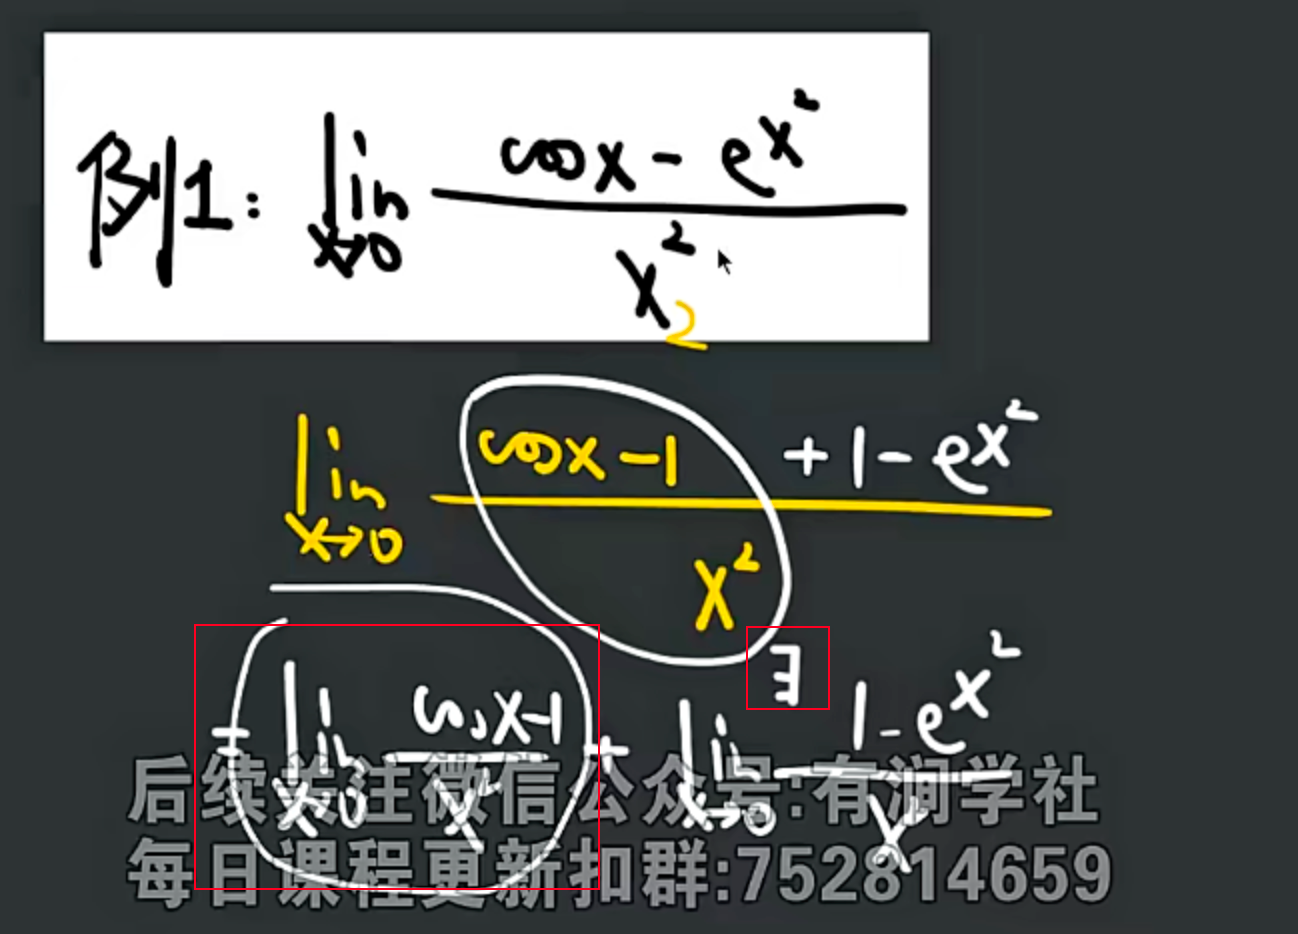 例1: lim x→0 (cosx - e^x²) / x²
2
lim x→0 (cosx-1 + 1-e^x²) / x²
∃
= lim x→0 (cosx-1) / x² + lim x→0 (1-e^x²) / x
后续关注微信公众号:有涧学社
每日课程更新扣群:752814659